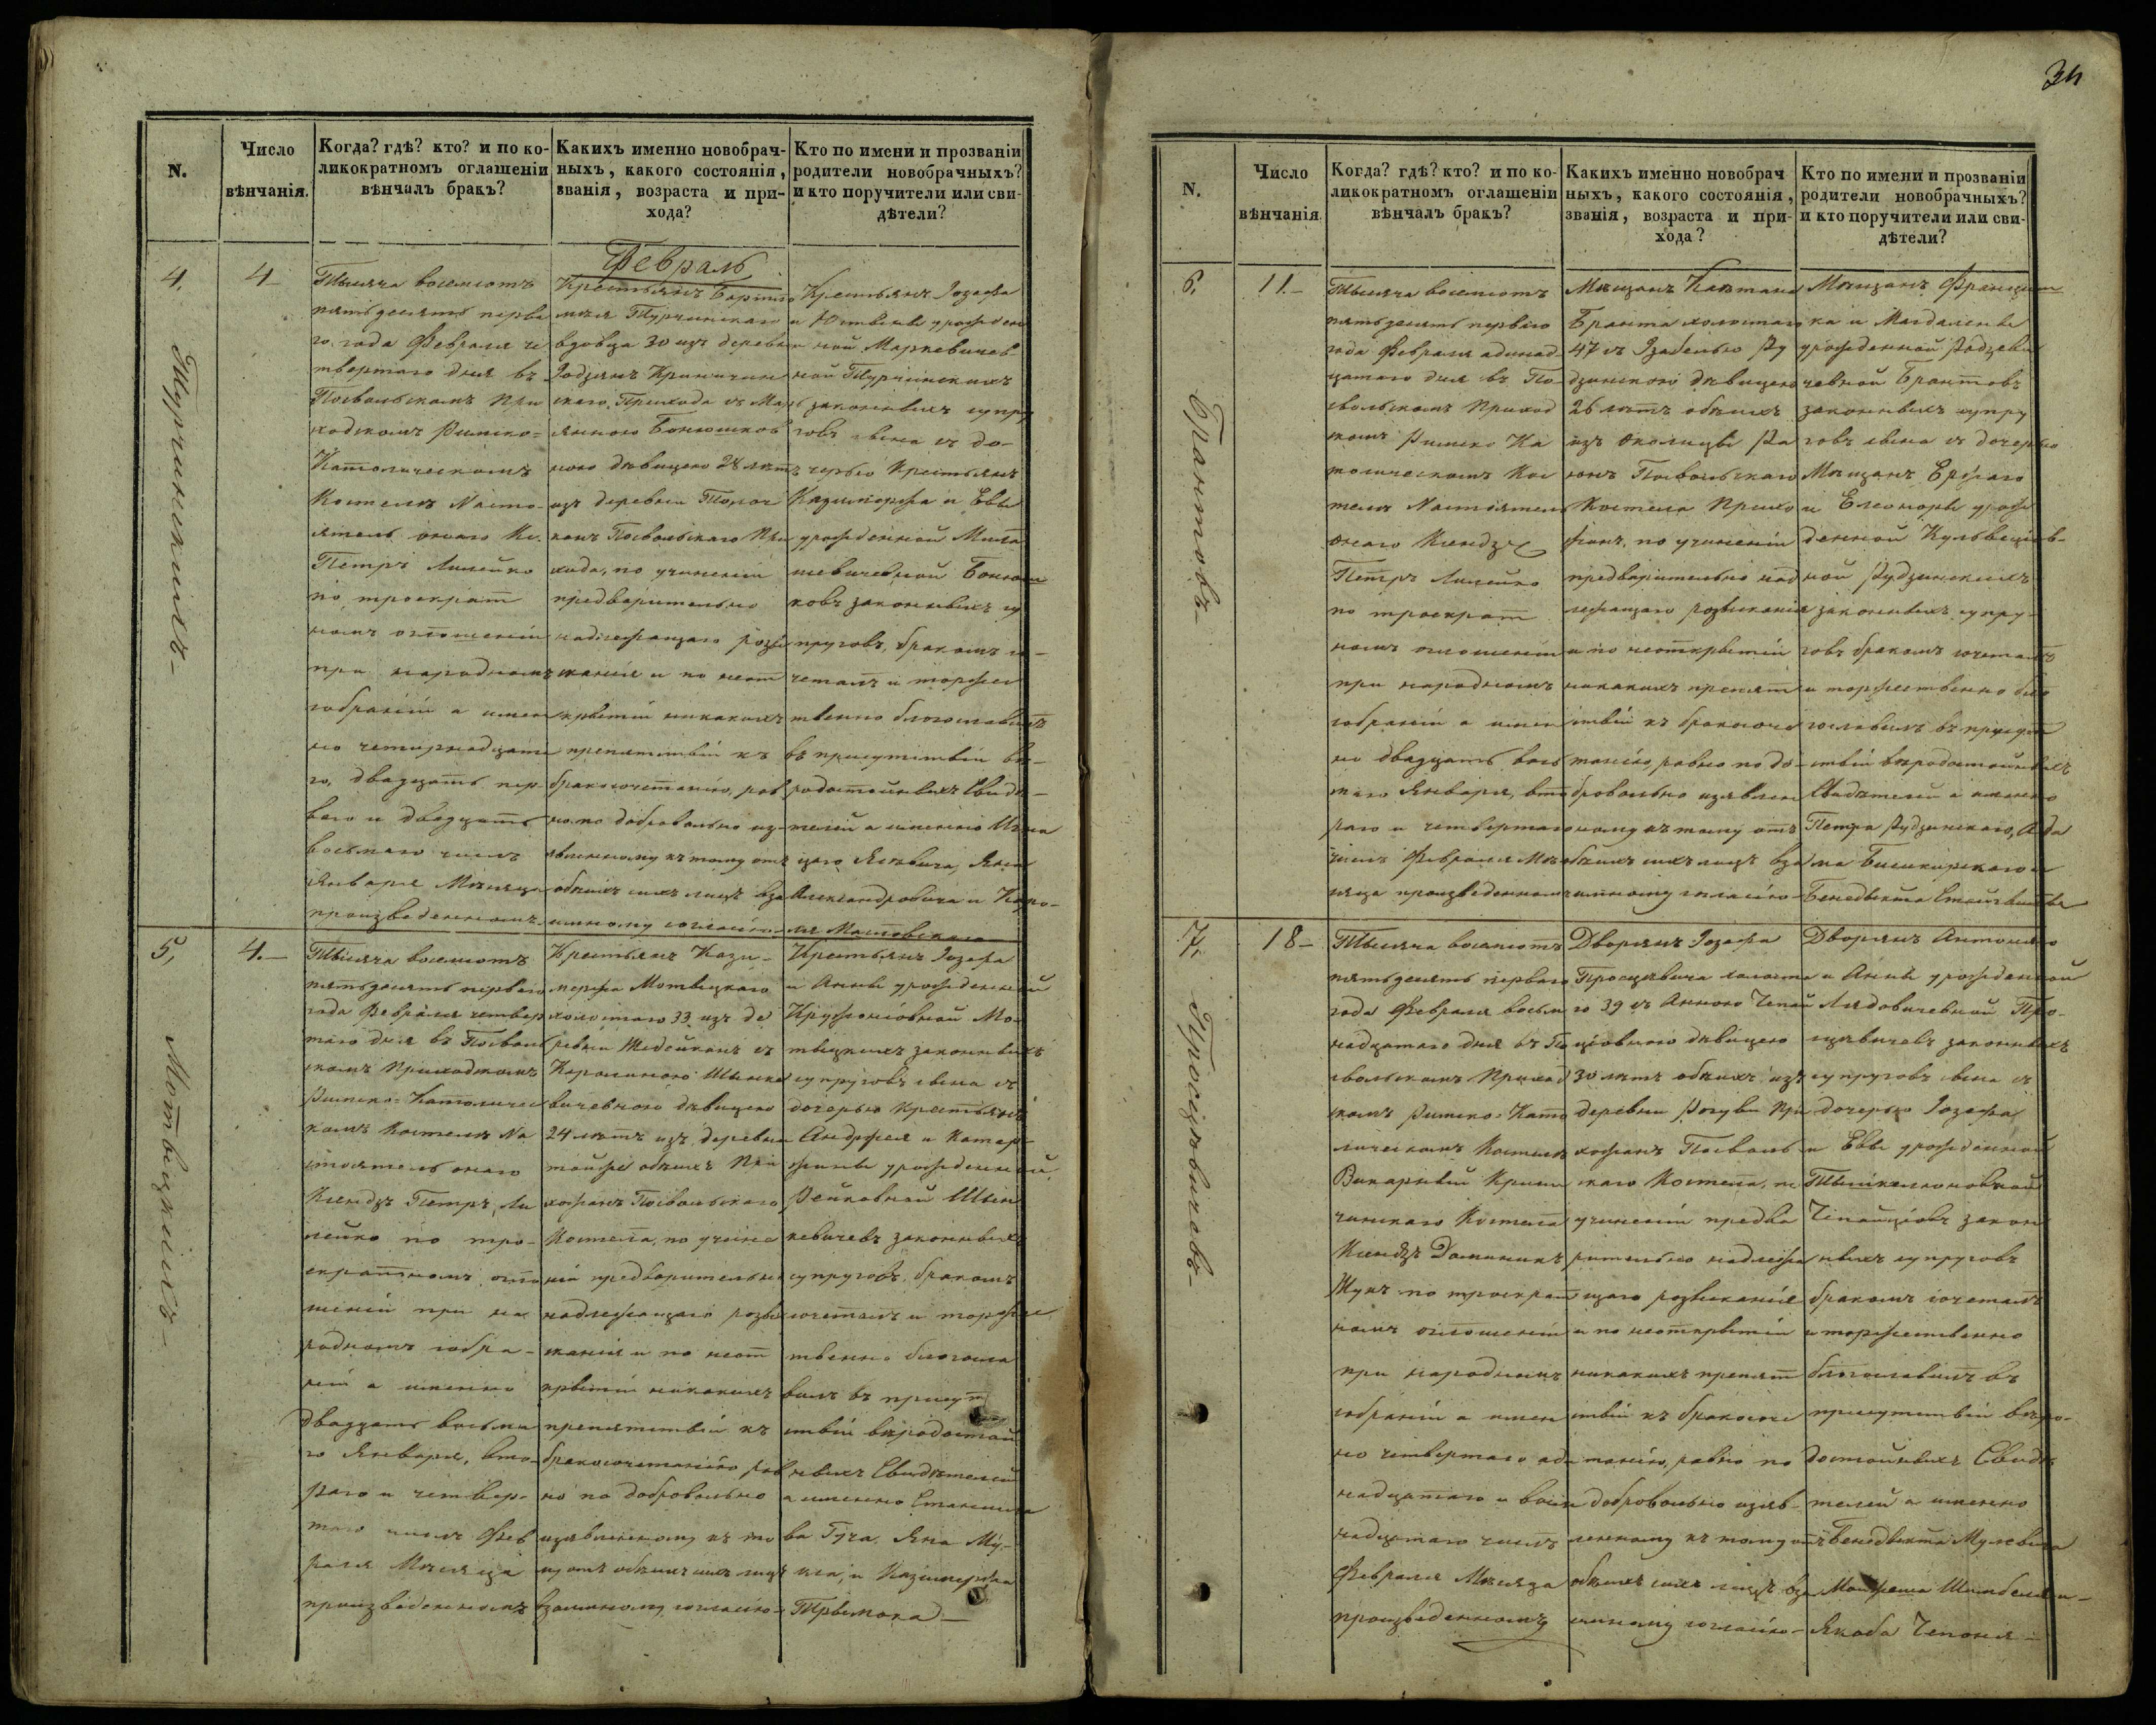 N.
Число
вѣнчанія.
Когда? гдѣ? кто? и по ко-
ликократномъ оглашеніи
вѣнчалъ бракъ?
Какихъ именно новобрач-
ныхъ, какого состоянія,
званія, возраста и при-
хода?
Кто по имени и прозванію
родители новобрачныхъ?
и кто поручители или сви-
дѣтели?
Февраль
4.
Турчинскихъ
4
Тысяча восемсотъ
пятьдесятъ перва
го года Февраля че
твертаго дня въ
Посвольскомъ При
ходскомъ Римско-
Католическомъ
Костелѣ Насто-
ятель онаго Кс.
Петръ Лилейко
по троекрат
номъ оглашеніи
при народномъ
собраніи а имен
но четырнадцата
го, двадцать пер
ваго и двадцать
восьмаго числъ
Января Мѣсяца
произведенномъ
Крестьянъ
мѣя Турчинскаго
вдовца 30 изъ деревни
скаго Прихода съ Мар
янною Бонюшков
ною дѣвицею 28 лѣтъ
изъ деревни
канъ Посвольскаго При
хода, по учиненіи
предварительно
надлежащаго розы
сканія и по неот
крытіи никакихъ
препятствій къ
бракосочетанію, рав
но по добровольно из
явленному къ тому отъ
обѣихъ сихъ лицъ вза
имному согласію
Крестьянъ Іозефа
и Юствины урожден
ной Маркевичев
ной Турчинскихъ
законныхъ супру
говъ сына съ до-
черью Крестьянъ
Казимержа и Евы
урожденной Мила
шевичевной Бонюш
ковъ законныхъ су
пруговъ, бракомъ со-
четалъ и торжес
твенно благословилъ
въ присутствіи вѣ-
родостойныхъ Свидѣ-
телей а именно Игна
цего Яневича, Яна
Александровича и Каро-
ля Масловскаго
5,
Мотвицкихъ
4.
Тысяча восемсотъ
пятьдесятъ перваго
года Февраля четвер
таго дня въ Посволь
скомъ Приходскомъ
Римско-Католичес
комъ Костелѣ На
стоятель онаго
Ксендзъ Петръ Ли
лейко по тро-
екратномъ огла
шеніи при на
родномъ собра-
ніи а именно
двадцать восьма
го Января, вто-
раго и четвер-
таго числъ Фев
раля Мѣсяца
произведенномъ
Крестьянъ Кази-
мержа Мотвицкаго
холостаго 33 изъ де
ревни Жидейканъ съ
Каролиною Шинке
вичевною дѣвицею
24 лѣтъ изъ деревни
обѣихъ При
хожанъ Посвольскаго
Костела, по учине
ніи предварительно
надлежащаго розы
сканія и по неот
крытіи никакихъ
препятствій къ
бракосочетанію рав
но по добровольно
изявленному къ то
му отъ обѣихъ сихъ лицъ
взаимному согласію
Крестьянъ Іозефа
и Анны урожденной
Мо-
твицкихъ законныхъ
супруговъ сына съ
дочерью Крестьянъ
Андржея и Катар
жины урожденной
Рейковной Шин
кевичевъ законныхъ
супруговъ, бракомъ
сочеталъ и торжес
твенно благосло
вилъ въ присут
ствіи вѣродостой
ныхъ Свидѣтелей
а именно Станисла
ва Гуча, Яна Му-
и Казимержа
Трымока
34
N.
Число
вѣнчанія.
Когда? гдѣ? кто? и по ко-
ликократномъ оглашеніи
вѣнчалъ бракъ?
Какихъ именно новобрач
ныхъ, какого состоянія,
званія, возраста и при-
хода?
Кто по имени и прозванію
родители новобрачныхъ?
и кто поручители или сви-
дѣтели?
6.
Брантовъ
11.
Тысяча восемсотъ
пятьдесятъ перваго
года Февраля адинад
цатаго дня въ По-
свольскомъ Приход
скомъ Римско Ка
толическомъ Кос
телѣ Настоятель
онаго Ксендзъ
Петръ Лилейко
по троекрат
номъ оглашеніи
при народномъ
собраніи а имен
но двадцать вось
маго Января, вто
раго и четвертаго
числъ Февраля Мѣ
сяца произведенномъ
Мѣщанъ Каетана
Бранта холостаго
47 съ Изабелью Ру
дзинскою дѣвицею
26 лѣтъ обѣихъ
изъ околицы
Посвольскаго
Костела Прихо
жанъ, по учиненіи
предварительно над
лежащаго розысканія
и по неоткрытіи
никакихъ препят
ствій къ бракосоче
танію, равно по до-
бровольно изявлен
ному къ тому отъ
обѣихъ сихъ лицъ вза
имному согласію
Мѣщанъ Франциш
ка и Магдалены
урожденной Радзеви
чевной Брантовъ
законныхъ супру
говъ сына съ дочерью
Мѣщанъ
и Елеоноры урож
денной
ной Рудзинскихъ
законныхъ супру-
говъ бракомъ сочеталъ
и торжественно бла
гословилъ въ присут
ствіи вѣродостойныхъ
Свидѣтелей а именно
Петра Рудзинскаго, Ада
ма и
Бенедыкта
7.
Просцевичевъ
18
Тысяча восемсотъ
пятьдесятъ перваго
года Февраля восьм
надцатаго дня въ По
свольскомъ Приход
скомъ Римско-Като
лическомъ Костелѣ
Викарный Крини
чинскаго Костела
Ксендзъ Доминикъ
Жукъ по троекрат
номъ оглашеніи
при народномъ
собраніи а имен
но четвертаго ади
надцатаго и восм
надцатаго числъ
Февраля Мѣсяца
произведенномъ
Дворянъ Іозефа
Просцевича холоста
го 39 съ Анною Чепай
ціовною дѣвицею
30 лѣтъ обѣихъ изъ
деревни Рогувы При
хожанъ Посволь
скаго Костела, по
учиненіи предва
рительно надлежа
щаго розысканія
и по неоткрытіи
никакихъ препят
ствій къ бракосоче
танію, равно по
добровольно изяв-
ленному къ тому отъ
обѣихъ сихъ лицъ вза
имному согласію
Дворянъ Антонего
и Анны урожденной
Лядовичевной Про-
щевичевъ законныхъ
супруговъ сына съ
дочерью Іозефа
и Евы урожденной
Чепайціовъ закон
ныхъ супруговъ
бракомъ сочеталъ
и торжественно
благословилъ въ
присутствіи вѣро-
достойныхъ Свидѣ
телей а именно
Бенедыкта
Якоба Чепоня